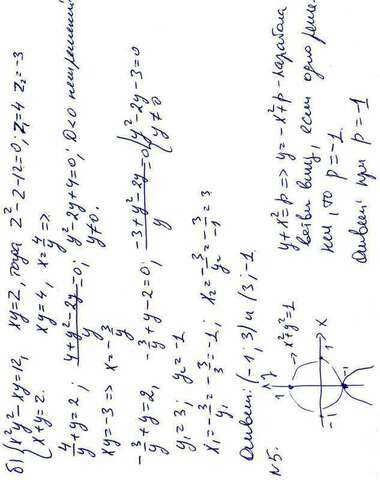 б) { x²y² - xy = 12,   xy = z, тогда z² - z - 12 = 0; z₁ = 4 z₂ = -3
x + y = 2.   xy = 4, x = 4/y =>
4/y + y = 2; (4 + y² - 2y)/y = 0; y² - 2y + 4 = 0; D < 0 нет решений
y ≠ 0.
xy = -3 => x = -3/y
-3/y + y = 2, -3/y + y - 2 = 0; (-3 + y² - 2y)/y = 0 { y² - 2y - 3 = 0
y ≠ 0
y₁ = 3; y₂ = -1
x₁ = -3/y₁ = -3/3 = -1; x₂ = -3/y₂ = -3/-1 = 3
Ответ: (-1; 3) и (3; -1
N5.
y
1
x² + y² = 1
1
x
-1
-1
y + x² = p => y = -x² + p - парабола
ветви вниз, если одно реше
ние, то p = -1.
Ответ: при p = -1